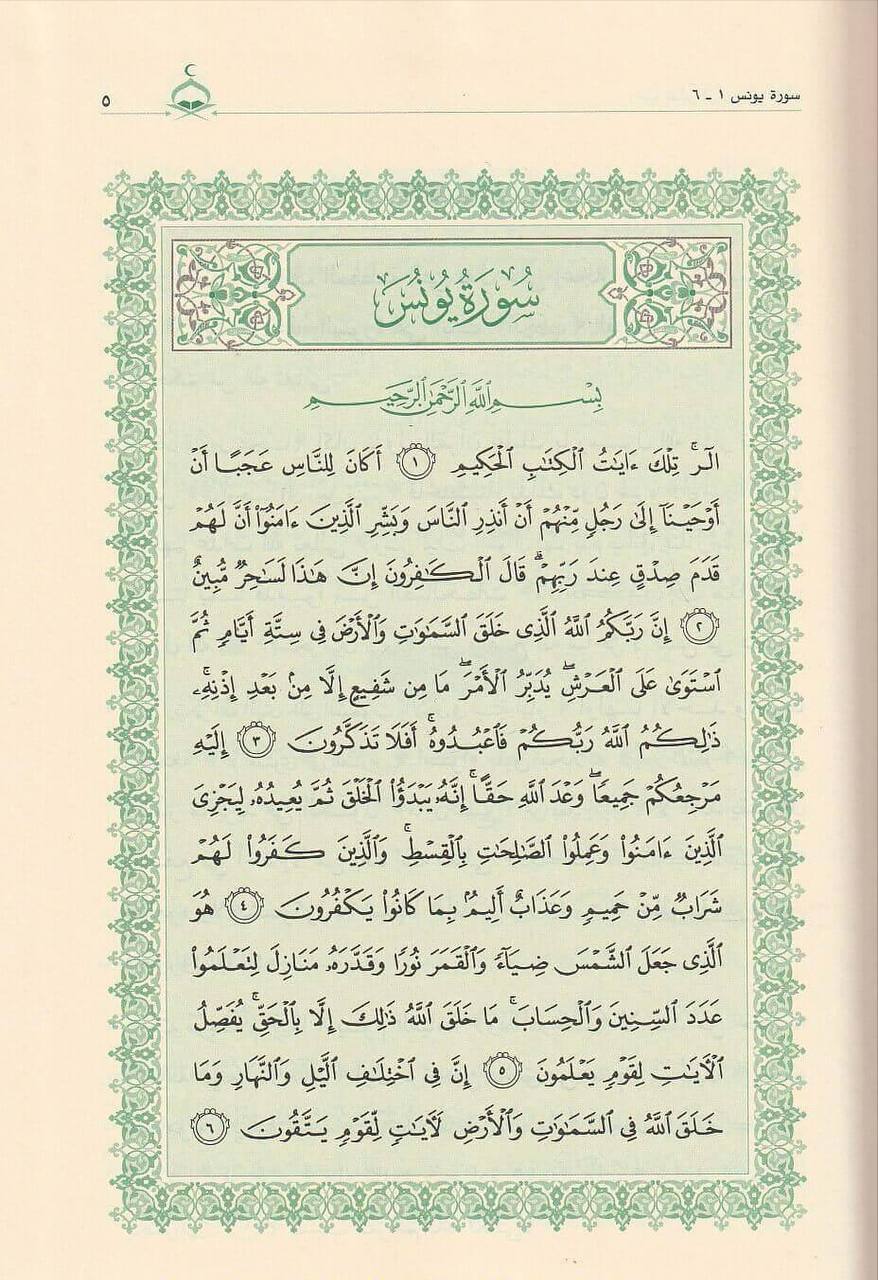 سورة يونس ١ - ٦
٥
سُورَةُ يُونُسَ
بِسْمِ ٱللَّهِ ٱلرَّحْمَٰنِ ٱلرَّحِيمِ
الٓرۚ تِلْكَ ءَايَٰتُ ٱلْكِتَٰبِ ٱلْحَكِيمِ ١ أَكَانَ لِلنَّاسِ عَجَبًا أَنْ
أَوْحَيْنَآ إِلَىٰ رَجُلٍ مِّنْهُمْ أَنْ أَنذِرِ ٱلنَّاسَ وَبَشِّرِ ٱلَّذِينَ ءَامَنُوٓا۟ أَنَّ لَهُمْ
قَدَمَ صِدْقٍ عِندَ رَبِّهِمْۗ قَالَ ٱلْكَٰفِرُونَ إِنَّ هَٰذَا لَسَٰحِرٌ مُّبِينٌ
٢ إِنَّ رَبَّكُمُ ٱللَّهُ ٱلَّذِى خَلَقَ ٱلسَّمَٰوَٰتِ وَٱلْأَرْضَ فِى سِتَّةِ أَيَّامٍ ثُمَّ
ٱسْتَوَىٰ عَلَى ٱلْعَرْشِۖ يُدَبِّرُ ٱلْأَمْرَۖ مَا مِن شَفِيعٍ إِلَّا مِنۢ بَعْدِ إِذْنِهِۦۚ
ذَٰلِكُمُ ٱللَّهُ رَبُّكُمْ فَٱعْبُدُوهُۚ أَفَلَا تَذَكَّرُونَ ٣ إِلَيْهِ
مَرْجِعُكُمْ جَمِيعًاۖ وَعْدَ ٱللَّهِ حَقًّاۚ إِنَّهُۥ يَبْدَؤُا۟ ٱلْخَلْقَ ثُمَّ يُعِيدُهُۥ لِيَجْزِىَ
ٱلَّذِينَ ءَامَنُوا۟ وَعَمِلُوا۟ ٱلصَّٰلِحَٰتِ بِٱلْقِسْطِۚ وَٱلَّذِينَ كَفَرُوا۟ لَهُمْ
شَرَابٌ مِّنْ حَمِيمٍ وَعَذَابٌ أَلِيمٌۢ بِمَا كَانُوا۟ يَكْفُرُونَ ٤ هُوَ
ٱلَّذِى جَعَلَ ٱلشَّمْسَ ضِيَآءً وَٱلْقَمَرَ نُورًا وَقَدَّرَهُۥ مَنَازِلَ لِتَعْلَمُوا۟
عَدَدَ ٱلسِّنِينَ وَٱلْحِسَابَۚ مَا خَلَقَ ٱللَّهُ ذَٰلِكَ إِلَّا بِٱلْحَقِّۚ يُفَصِّلُ
ٱلْءَايَٰتِ لِقَوْمٍ يَعْلَمُونَ ٥ إِنَّ فِى ٱخْتِلَٰفِ ٱلَّيْلِ وَٱلنَّهَارِ وَمَا
خَلَقَ ٱللَّهُ فِى ٱلسَّمَٰوَٰتِ وَٱلْأَرْضِ لَءَايَٰتٍ لِّقَوْمٍ يَتَّقُونَ ٦